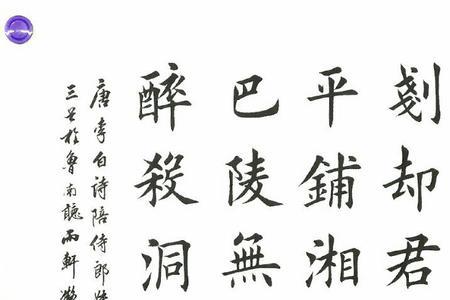 剗却君
平鋪湘
巴陵無
醉殺洞
唐李白诗陪侍郎
三於魯南聽雨軒